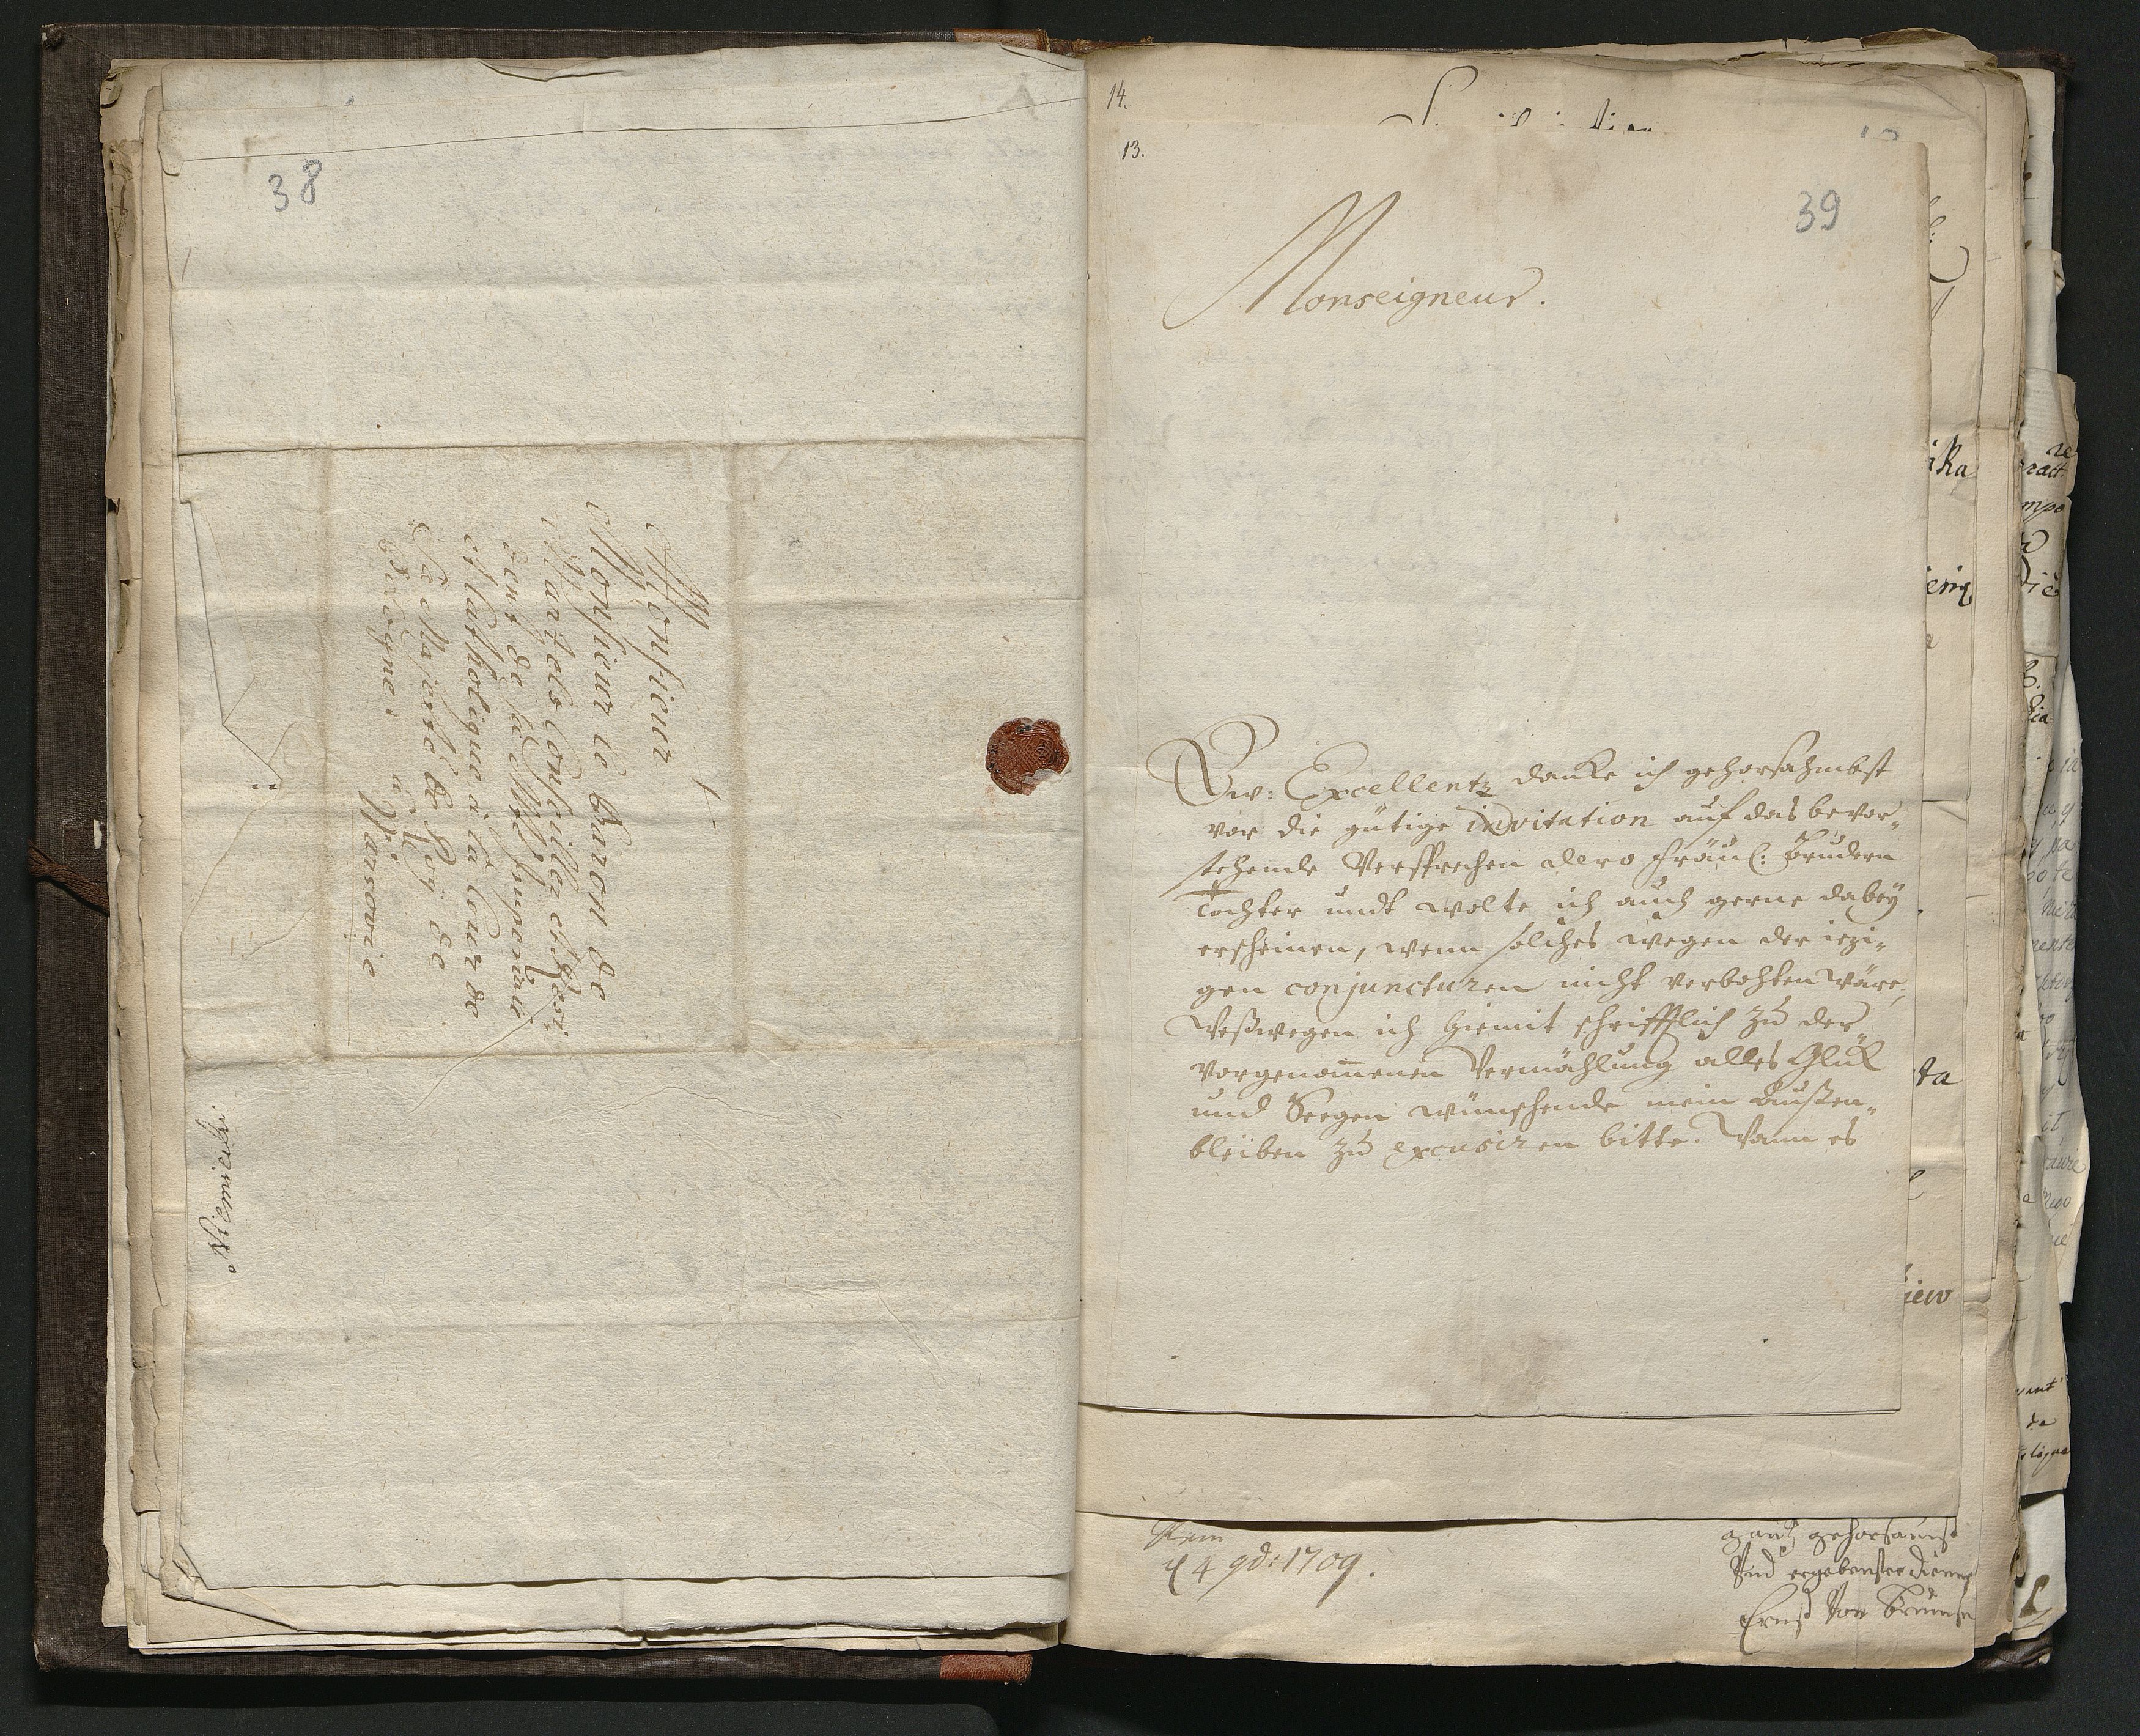 38
Monsieur
Monsieur le Baron de
Martels Conseiller et Resi
dent de sa Mté Imperiale
et Catholique a la Cour de
Sa Majesté le Roy de
Pologne
à
Varsovie
Niemiecki
14.
13.
39
Monseigneur.
Ew: Excellentz danke ich gehorsahmbst
vor die gütige invitation auf das bevor„
stehende Versprechen dero Fräul: Brudern
Tochter undt wolte ich auch gerne dabey
erscheinen, wenn solches wegen der iezi„
gen conjuncturen nicht verbohten wäre,
Weßwegen ich hiemit schrifftlich zu der
vorgenom̄enen Vermählung alles Glük
und Seegen wünschende mein Außen„
bleiben zu excusiren bitte. Wann es
d 4 9b: 1709.
gantz gehorsamst
Und ergebenster diener
Ernst Von